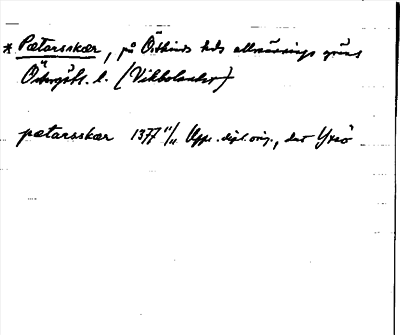 * Pætarsskær, på Östkinds hds allmännings gräns
Östergötl. l. (Vikbolandet)
pætarsskær 1377 11/11 Upps. dipl. orig., dat Yxö